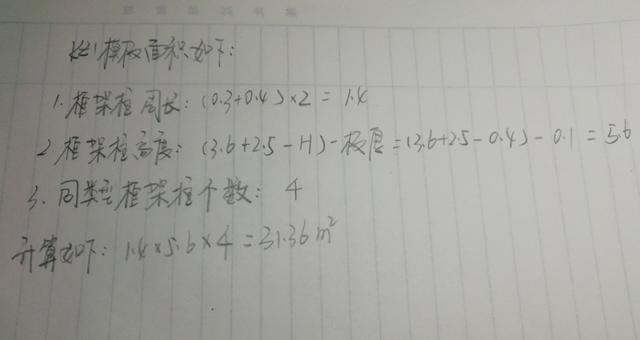 KZ1模板面积如下:
1.框架柱周长:(0.3+0.4)×2=1.4
2.框架柱高度:(3.6+2.5-H)-板厚=(3.6+2.5-0.4)-0.1=5.6
3.同类型框架柱个数:4
计算如下:1.4×5.6×4=31.36m²